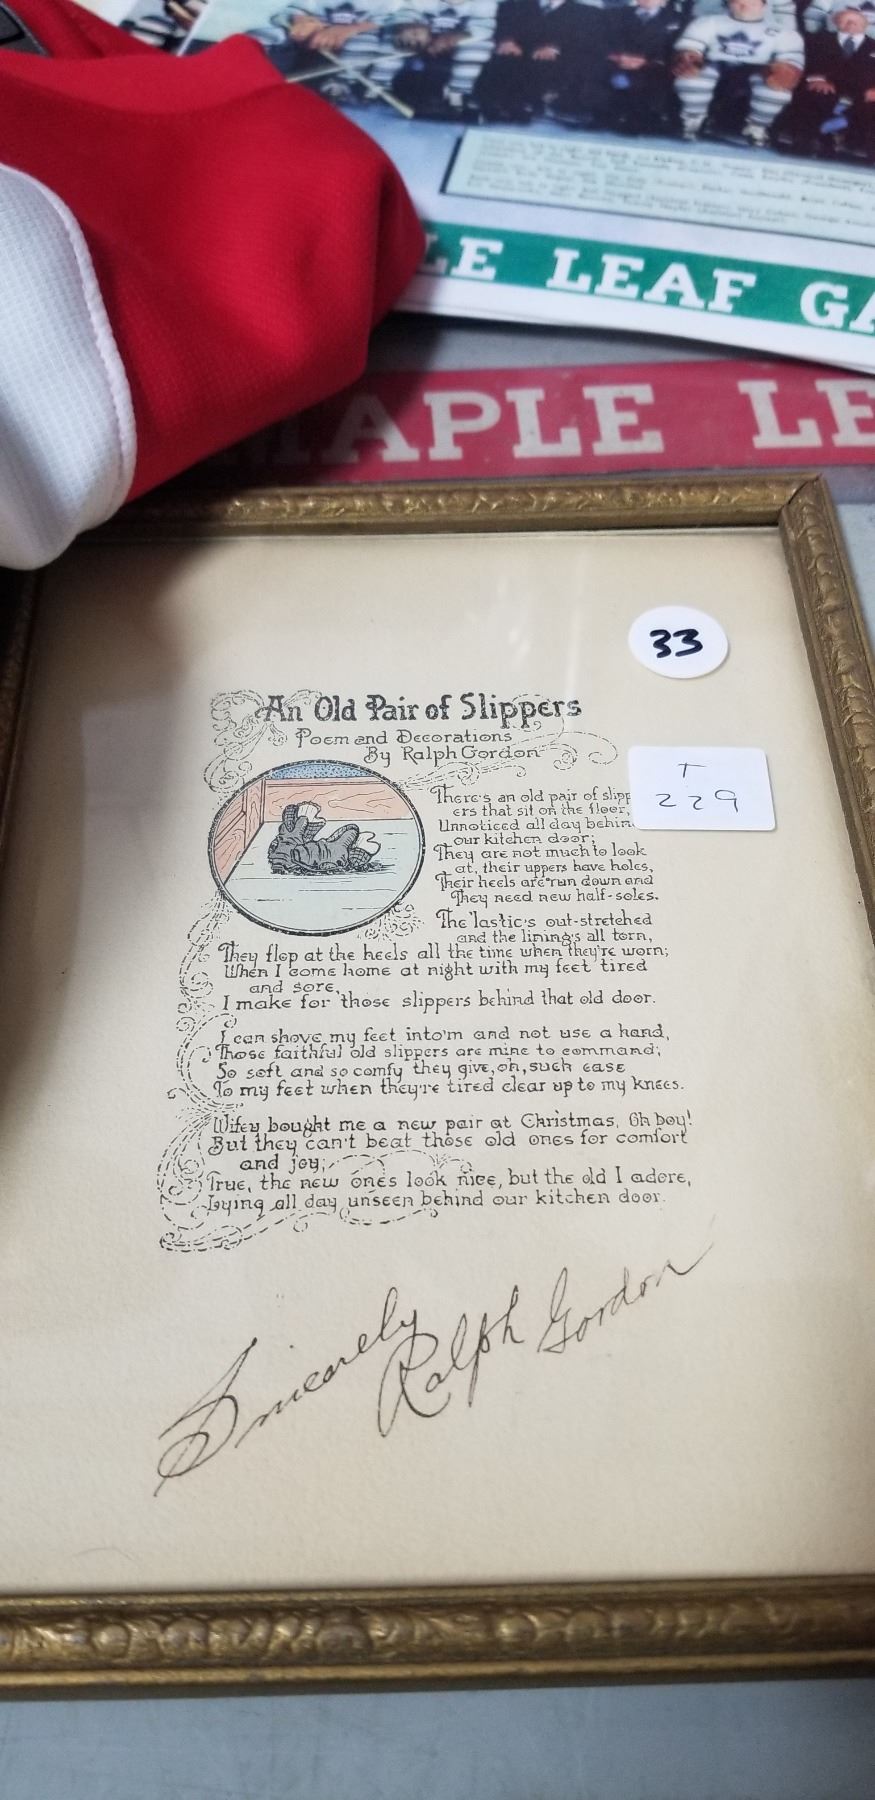 LE LEAF GA
MAPLE LE
33
T
229
An Old Pair of Slippers
Poem and Decorations
By Ralph Gordon
There's an old pair of slipp
ers that sit on the floor,
Unnoticed all day behin
our kitchen door;
They are not much to look
at, their uppers have holes,
Their heels are run down and
They need new half-soles.
The 'lastic's out-stretched
and the lining's all torn,
They flop at the heels all the time when they're worn;
When I come home at night with my feet tired
and sore,
I make for those slippers behind that old door.
I can shove my feet into'm and not use a hand,
Those faithful old slippers are mine to command;
So soft and so comfy they give, oh, such ease
To my feet when they're tired clear up to my knees.
Wifey bought me a new pair at Christmas, Oh boy!
But they can't beat those old ones for comfort
and joy;
True, the new ones look nice, but the old I adore,
Lying all day unseen behind our kitchen door.
Sincerely
Ralph Gordon